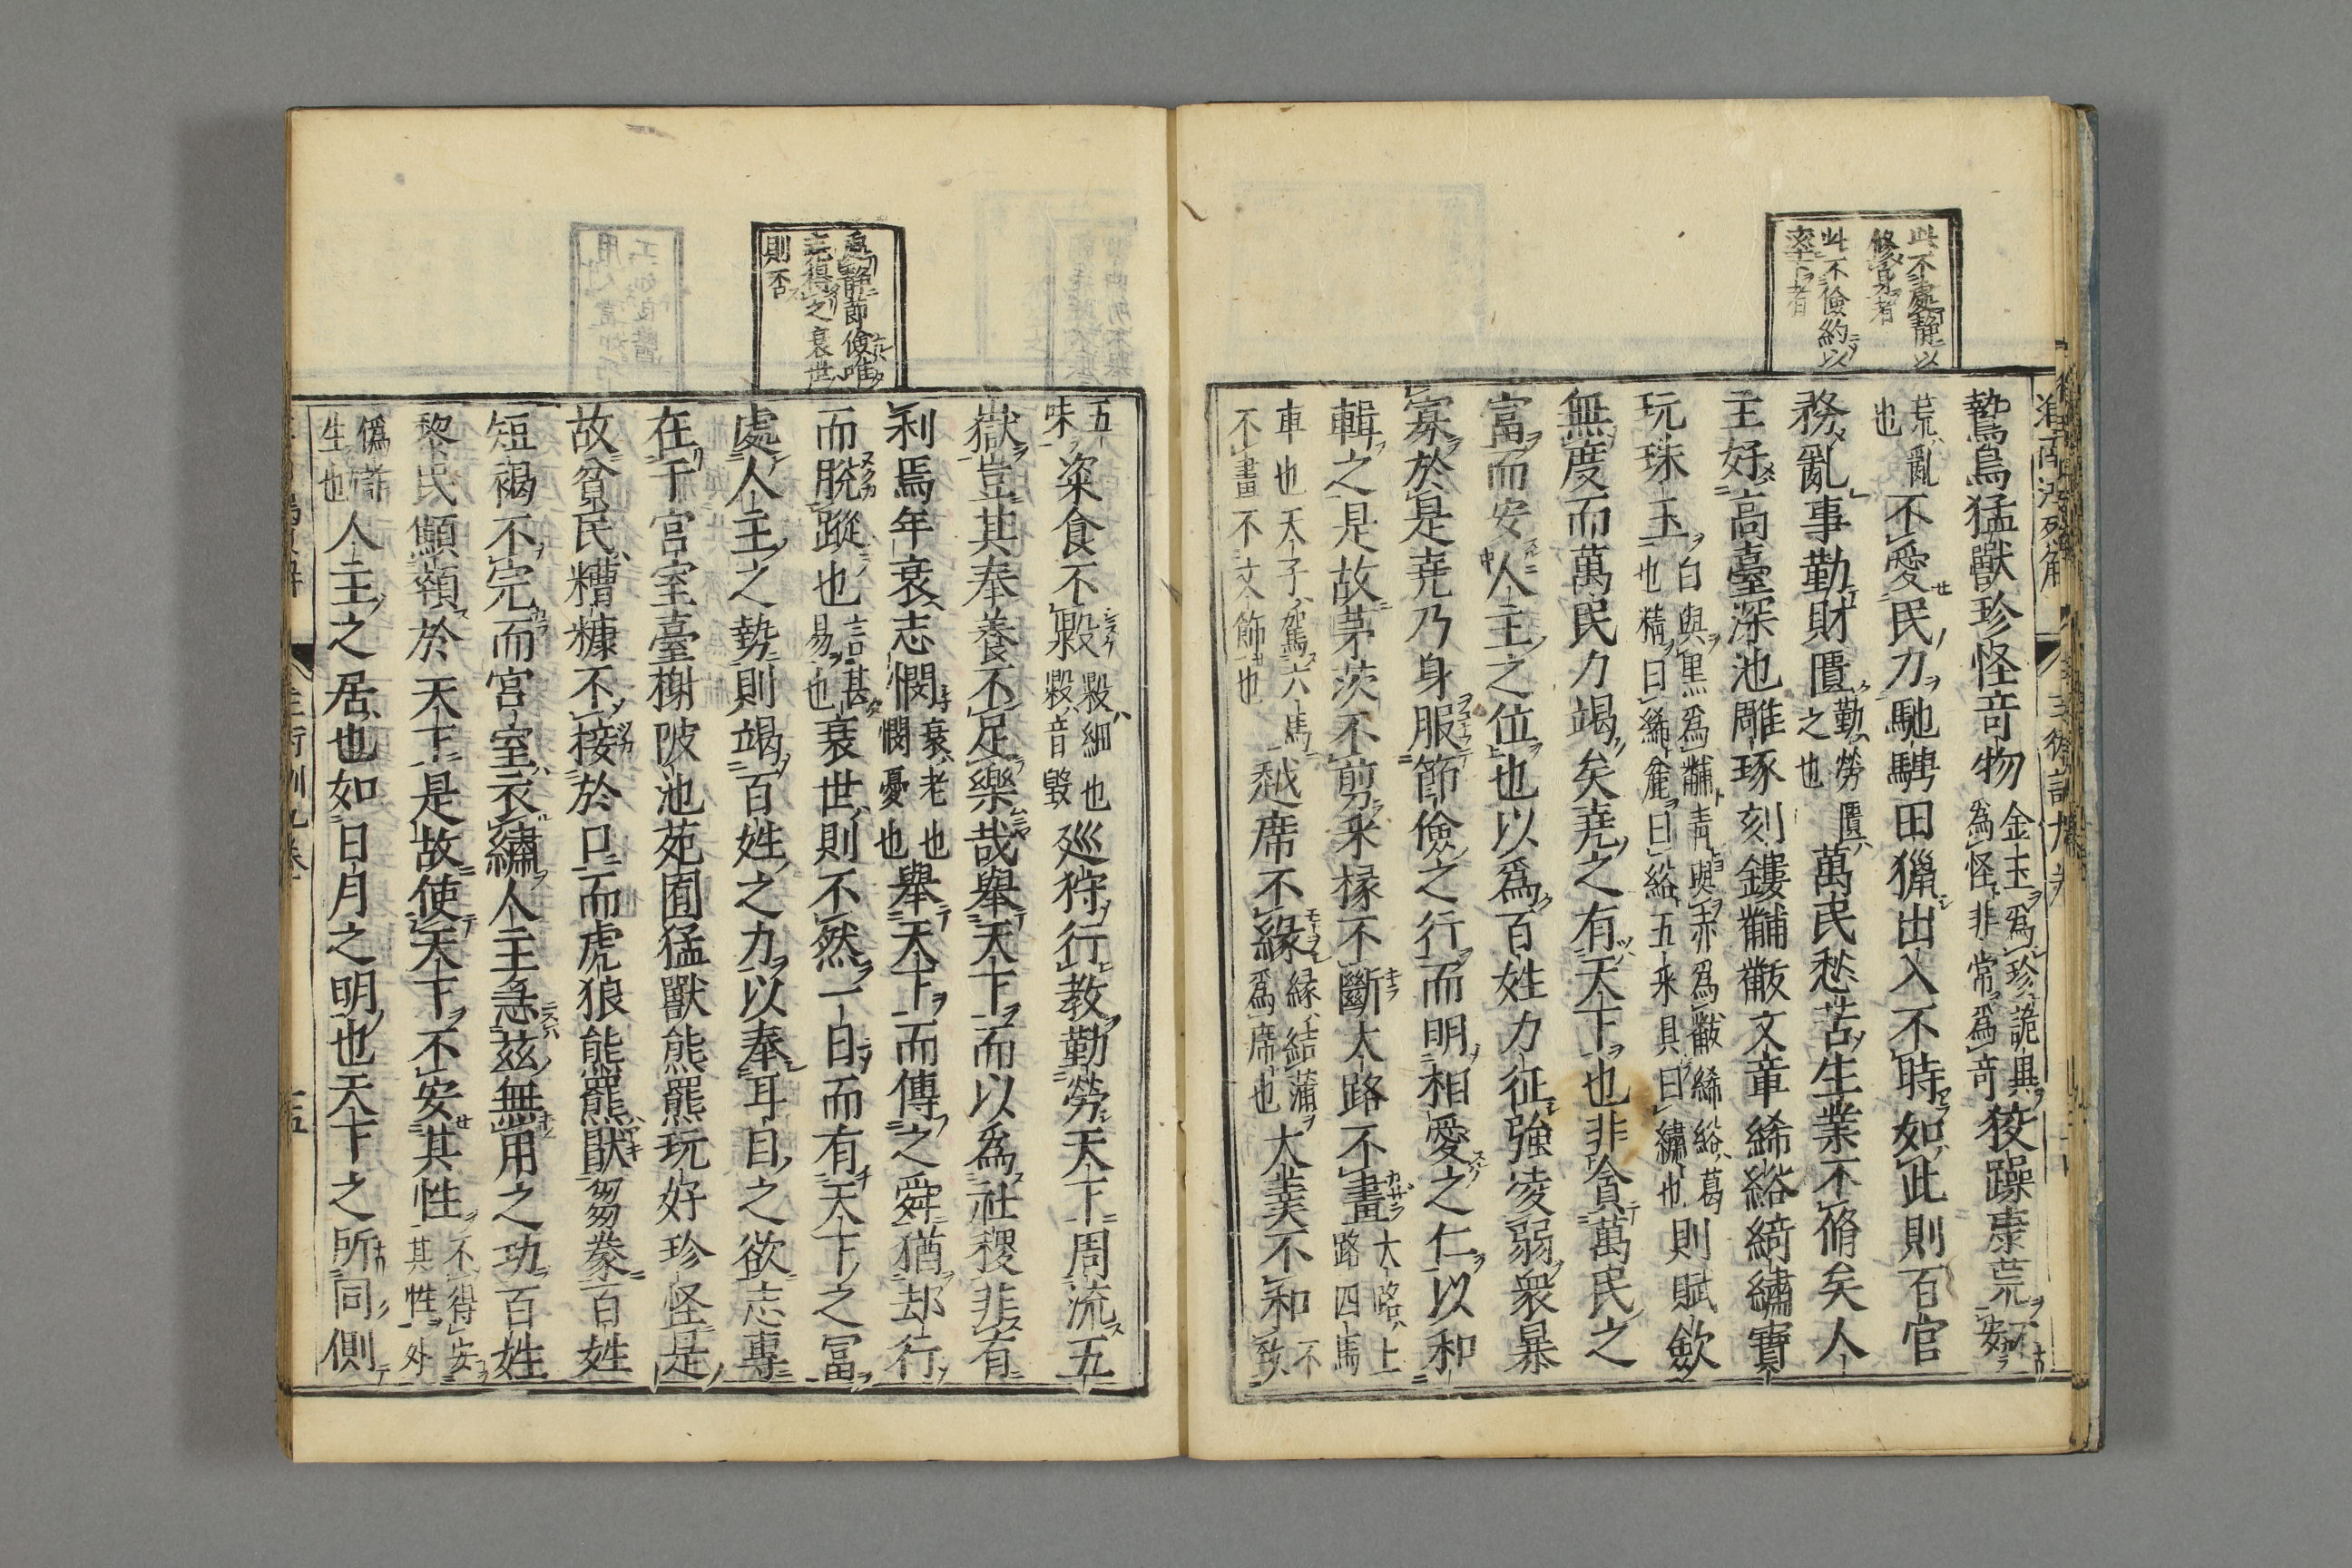 此不處靜以
修身者
此不儉約以
率下者
鷙鳥猛獸珍怪竒物金玉爲珍詭異爲怪非常爲竒狡躁康荒不安
荒亂也不愛民力馳騁田獵出入不時如此則百官
務亂事勤財匱勤勞匱之也萬民愁苦生業不脩矣人
主好高臺深池雕琢刻鏤黼黻文章絺綌綺繡寶
玩珠玉白與黒爲黼青與赤爲黻絺綌葛也精曰絺麄曰綌五采具曰繡也則賦歛
無度而萬民力竭矣堯之有天下也非貪萬民之
富而安人主之位也以爲百姓力征強凌弱衆暴
寡於是堯乃身服節儉之行而明相愛之仁以和
輯之是故茅茨不剪采椽不斷大路不畫大路上路四馬
車也天子駕六馬不畫不文飾也越席不緣緣結蒲爲席也大羹不和不致
處靜節儉唯
堯得之衰世
則否
五味粢食不毇毇細也毇音毀巡狩行教勤勞天下周流五
嶽豈其奉養不足樂哉舉天下而以爲社稷非有
利焉年衰志憫衰老也憫憂也舉天下而傳之舜猶却行
而脫蹝也言甚易也衰世則不然一日而有天下之冨
處人主之勢則竭百姓之力以奉耳目之欲志專
在于宮室臺榭陂池苑囿猛獸熊羆玩好珍怪是
故貧民糟糠不接於口而虎狼熊羆猒芻豢百姓
短褐不完而宮室衣繡人主急茲無用之功百姓
黎民顦顇於天下是故使天下不安其性不得安其性外
僞詐生也人主之居也如日月之明也天下之所同側